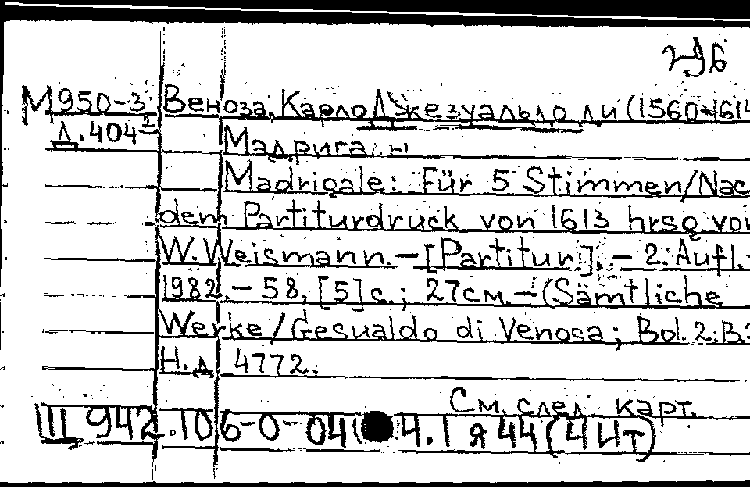 296
М950-3 Веноза, Карло Джезуальдо ди (1560-1614
Д.404
Мадрига
Madrigale: Für 5 Stimmen/Nac
dem Partiturdruck von 1613 hrsg vo
W. Weismann.-[Partitur].- 2. Aufl.-
1982.- 58, [5] с.; 27 см.-(Sämtliche
Werke/Gesualdo di Venosa; Bd. 2: B.
Н.д. 4772.
См. след. карт.
III 942.106-0-04 4.1 я 44 (4 Ит)